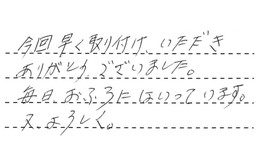 今回早く取り付け、いただき
ありがとうございました。
毎日おふろにはいっています。
又よろしく。